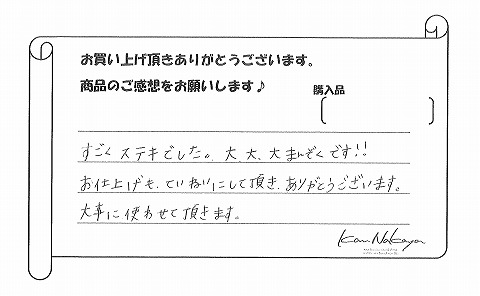 お買い上げ頂きありがとうございます。
商品のご感想をお願いします♪
購入品
すごくステキでした。大、大、大まんぞくです!!
お仕上げも、ていねいにして頂き、ありがとうございます。
大事に使わせて頂きます。
Kan Nakaya